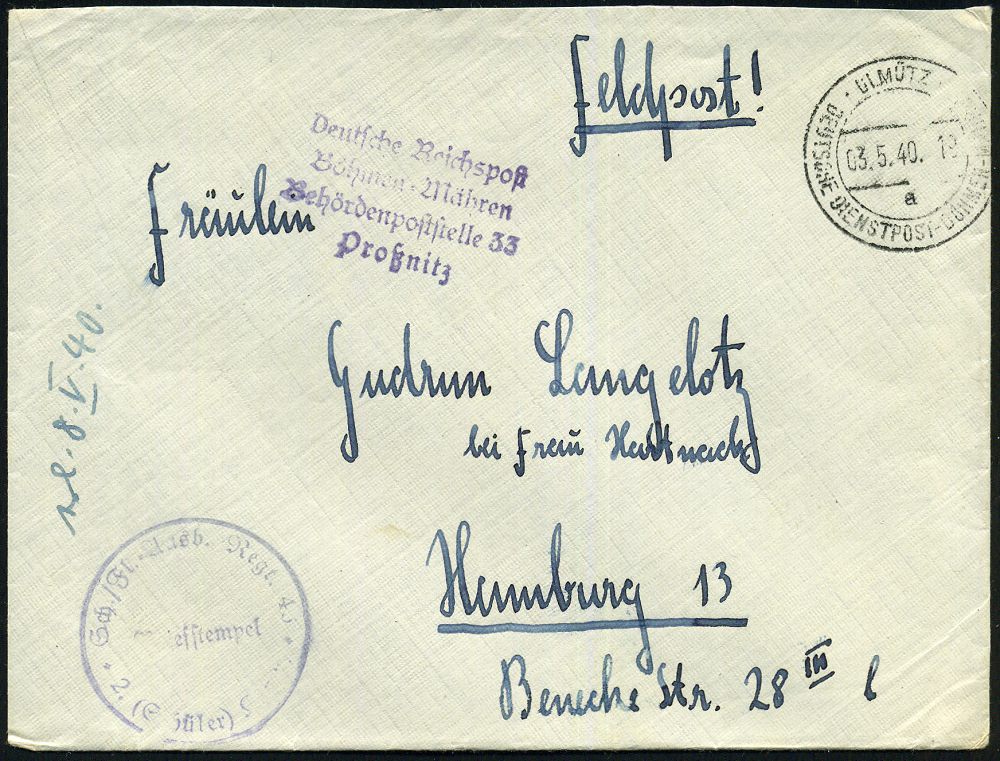 Feldpost!
OLMÜTZ
DEUTSCHE DIENSTPOST-BÖHMEN-
03.5.40.
a
Deutsche Reichspost
Böhmen-Mähren
Behördenpoststelle 33
Proßnitz
Fräulein
Gudrun Langelotz
bei Frau Hartnack
Hamburg 13
Benecke Str. 28 III l
8.V.40.
Sch./Fl.-Ausb. Regt. 43
Briefstempel
2. (Schüler)